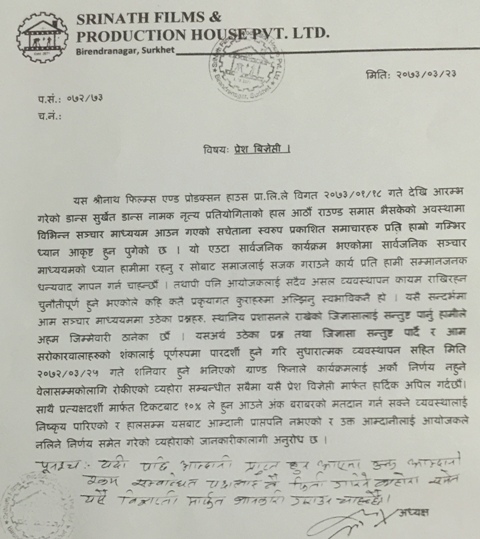 SRINATH FILMS &
PRODUCTION HOUSE PVT. LTD.
Birendranagar, Surkhet
मिति: २०७३/०३/२३
प.सं.: ०७२/७३
च.नं.:
विषय: प्रेश बिज्ञेप्ती ।
यस श्रीनाथ फिल्म्स एण्ड प्रोडक्सन हाउस प्रा.लि.ले विगत २०७३/०१/१८ गते देखि आरम्भ
गरेको डान्स सुर्खेत डान्स नामक नृत्य प्रतियोगिताको हाल आठौं राउण्ड समाप्त भैसकेको अवस्थामा
विभिन्न सञ्चार माध्यममा आउन गएको सचेतना स्वरुप प्रकाशित समाचारहरु प्रति हाम्रो गम्भिर
ध्यान आकृष्ट हुन पुगेको छ । यो एउटा सार्वजनिक कार्यक्रम भएकोमा सार्वजनिक सञ्चार
माध्यमको ध्यान हामीमा रहनु र सोबाट समाजलाई सजक गराउने कार्य प्रति हामी सम्मानजनक
धन्यवाद ज्ञापन गर्न चाहन्छौं । तथापी पनि आयोजकलाई सदैव असल व्यवस्थापन कायम राखिरहन
चुनौतीपूर्ण हुने भएकोले कहि कतै प्रकृयागत कुराहरुमा अल्झिनु स्वभाविकनै हो । यसै सन्दर्भमा
आम सञ्चार माध्यममा उठेका प्रश्नहरु, स्थानिय प्रशासनले राखेको जिज्ञासालाई सन्तुष्ट पार्नु हामीले
अहम जिम्मेवारी ठानेका छौं । यसअर्थ उठेका प्रश्न तथा जिज्ञासा सन्तुष्ट पार्दै र आम
सरोकारवालाहरुको शंकालाई पूर्णरुपमा पारदर्शी हुने गरि सुधारात्मक व्यवस्थापन सहित मिति
२०७२/०३/२५ गते शनिवार हुने भनिएको ग्राण्ड फिनाले कार्यक्रमलाई अर्को निर्णय नहुने
वेलासम्मकोलागि रोकीएको व्यहोरा सम्बन्धीत सबैमा यसै प्रेश बिज्ञेप्ती मार्फत हार्दिक अपिल गर्दछौं।
साथै प्रत्यक्षदर्शी मार्फत टिकटबाट १०% ले हुन आउने अंक बराबरको मतदान गर्न सक्ने व्यवस्थालाई
निष्कृय पारिएको र हालसम्म यसबाट आम्दानी प्राप्तपनि नभएको र उक्त आम्दानीलाई आयोजकले
नलिने निर्णय समेत गरेको व्यहोराको जानकारीकालागी अनुरोध छ ।
पुनश्च: यदी आम्दानी प्राप्त हुन आएमा उक्त आम्दानी
सम्बन्धित फिर्ता व्यहोरा समेत
यसै मार्फत जानकारी चाहन्छौं।
अध्यक्ष